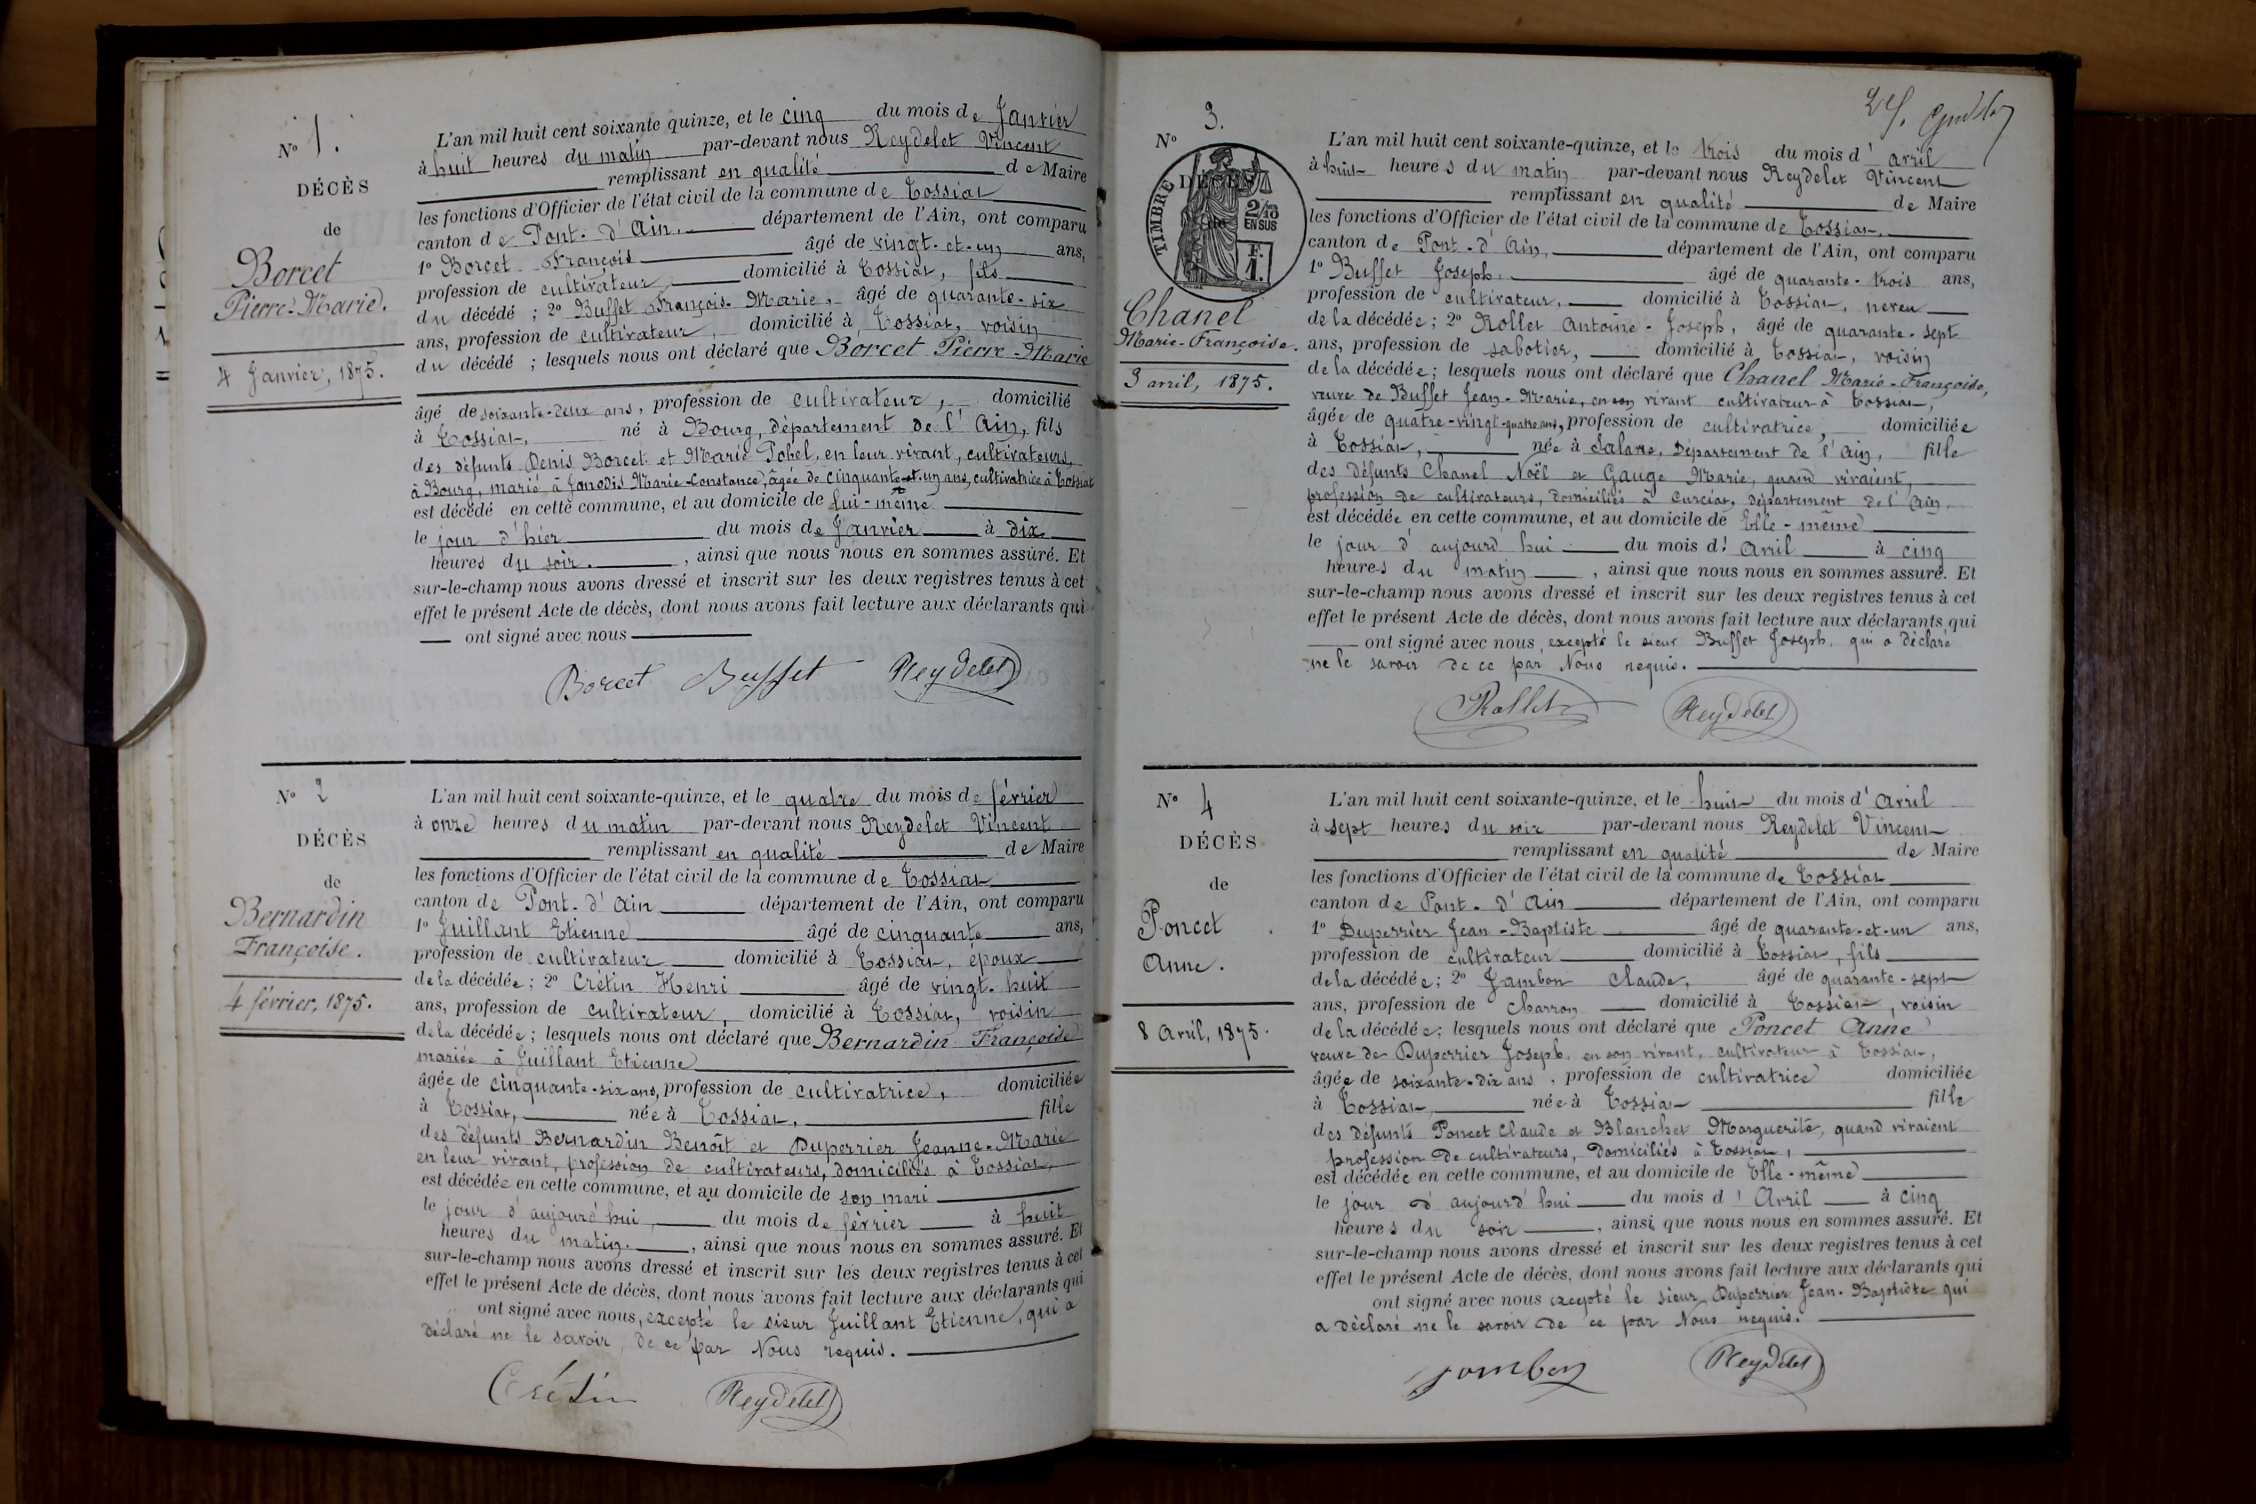 N° 1.
DÉCÈS
de
Borcet
Pierre-Marie.
4 Janvier, 1875.
L'an mil huit cent soixante quinze, et le cinq du mois de Janvier
à huit heures du matin par-devant nous Reydelet Vincent
remplissant en qualité de Maire
les fonctions d'Officier de l'état civil de la commune de Tossiat
canton de Pont-d'Ain, département de l'Ain, ont comparu
1° Borcet François âgé de vingt-et-un ans,
profession de cultivateur, domicilié à Tossiat, fils
du décédé ; 2° Buffet François-Marie, âgé de quarante-six
ans, profession de cultivateur, domicilié à Tossiat, voisin
du décédé ; lesquels nous ont déclaré que Borcet Pierre-Marie
âgé de soixante-deux ans, profession de cultivateur, domicilié
à Tossiat, né à Bourg, département de l'Ain, fils
des défunts Denis Borcet et Marie Pobel, en leur vivant, cultivateurs,
à Bourg, marié à Janodis Marie-Constance, âgée de cinquante-et-un ans, cultivatrice à Tossiat
est décédé en cette commune, et au domicile de lui-même
le jour d'hier du mois de Janvier à dix
heures du soir. , ainsi que nous nous en sommes assuré. Et
sur-le-champ nous avons dressé et inscrit sur les deux registres tenus à cet
effet le présent Acte de décès, dont nous avons fait lecture aux déclarants qui
ont signé avec nous
Borcet Buffet Reydelet
N° 2
DÉCÈS
de
Bernardin
Françoise.
4 février, 1875.
L'an mil huit cent soixante-quinze, et le quatre du mois de février
à onze heures du matin par-devant nous Reydelet Vincent
remplissant en qualité de Maire
les fonctions d'Officier de l'état civil de la commune de Tossiat
canton de Pont-d'Ain département de l'Ain, ont comparu
1° Juillant Etienne âgé de cinquante ans,
profession de cultivateur domicilié à Tossiat, époux
de la décédée ; 2° Crétin Henri âgé de vingt-huit
ans, profession de cultivateur, domicilié à Tossiat, voisin
de la décédée ; lesquels nous ont déclaré que Bernardin Françoise
mariée à Juillant Etienne
âgée de cinquante-six ans, profession de cultivatrice, domiciliée
à Tossiat, née à Tossiat, fille
des défunts Bernardin Benoît et Duperrier Jeanne-Marie
en leur vivant, profession de cultivateurs, domiciliés à Tossiat,
est décédée en cette commune, et au domicile de son mari
le jour d'aujourd'hui, du mois de février à huit
heures du matin. , ainsi que nous nous en sommes assuré. Et
sur-le-champ nous avons dressé et inscrit sur les deux registres tenus à cet
effet le présent Acte de décès, dont nous avons fait lecture aux déclarants qui
ont signé avec nous, excepté le sieur Juillant Etienne, qui a
déclaré ne le savoir, de ce par Nous requis.
Crétin Reydelet
N° 3.
DÉCÈS
de
TIMBRE
2/10
EN SUS
F.
1.
Chanel
Marie-Françoise.
3 avril, 1875.
L'an mil huit cent soixante-quinze, et le trois du mois d'avril
à huit heures du matin par-devant nous Reydelet Vincent
remplissant en qualité de Maire
les fonctions d'Officier de l'état civil de la commune de Tossiat,
canton de Pont-d'Ain, département de l'Ain, ont comparu
1° Buffet Joseph, âgé de quarante-trois ans,
profession de cultivateur, domicilié à Tossiat, neveu
de la décédée ; 2° Rollet Antoine-Joseph, âgé de quarante-sept
ans, profession de sabotier, domicilié à Tossiat, voisin
de la décédée ; lesquels nous ont déclaré que Chanel Marie-Françoise,
veuve de Buffet Jean-Marie, en son vivant cultivateur à Tossiat,
âgée de quatre-vingt-quatre ans, profession de cultivatrice, domiciliée
à Tossiat, née à Salave, Département de l'Ain, fille
des défunts Chanel Noël et Gauge Marie, quand vivaient,
profession de cultivateurs, domiciliés à Curciat, département de l'Ain,
est décédée en cette commune, et au domicile de Elle-même
le jour d'aujourd'hui du mois d'Avril à cinq
heures du matin , ainsi que nous nous en sommes assuré. Et
sur-le-champ nous avons dressé et inscrit sur les deux registres tenus à cet
effet le présent Acte de décès, dont nous avons fait lecture aux déclarants qui
ont signé avec nous, excepté le sieur Buffet Joseph, qui a déclaré
ne le savoir de ce par Nous requis.
Rollet Reydelet
N° 4
DÉCÈS
de
Poncet
Anne.
8 Avril, 1875.
L'an mil huit cent soixante-quinze, et le huit du mois d'Avril
à sept heures du soir par-devant nous Reydelet Vincent
remplissant en qualité de Maire
les fonctions d'Officier de l'état civil de la commune de Tossiat
canton de Pont-d'Ain département de l'Ain, ont comparu
1° Duperrier Jean-Baptiste âgé de quarante-et-un ans,
profession de cultivateur domicilié à Tossiat, fils
de la décédée ; 2° Jambon Claude, âgé de quarante-sept
ans, profession de charron domicilié à Tossiat, voisin
de la décédée ; lesquels nous ont déclaré que Poncet Anne
veuve de Duperrier Joseph, en son vivant, cultivateur à Tossiat,
âgée de soixante-dix ans, profession de cultivatrice domiciliée
à Tossiat, née à Tossiat fille
des défunts Poncet Claude et Blanchet Marguerite, quand vivaient
profession de cultivateurs, domiciliés à Tossiat,
est décédée en cette commune, et au domicile de Elle-même
le jour d'aujourd'hui du mois d'Avril à cinq
heures du soir , ainsi que nous nous en sommes assuré. Et
sur-le-champ nous avons dressé et inscrit sur les deux registres tenus à cet
effet le présent Acte de décès, dont nous avons fait lecture aux déclarants qui
ont signé avec nous excepté le sieur Duperrier Jean-Baptiste qui
a déclaré ne le savoir de ce par Nous requis.
Jambon Reydelet